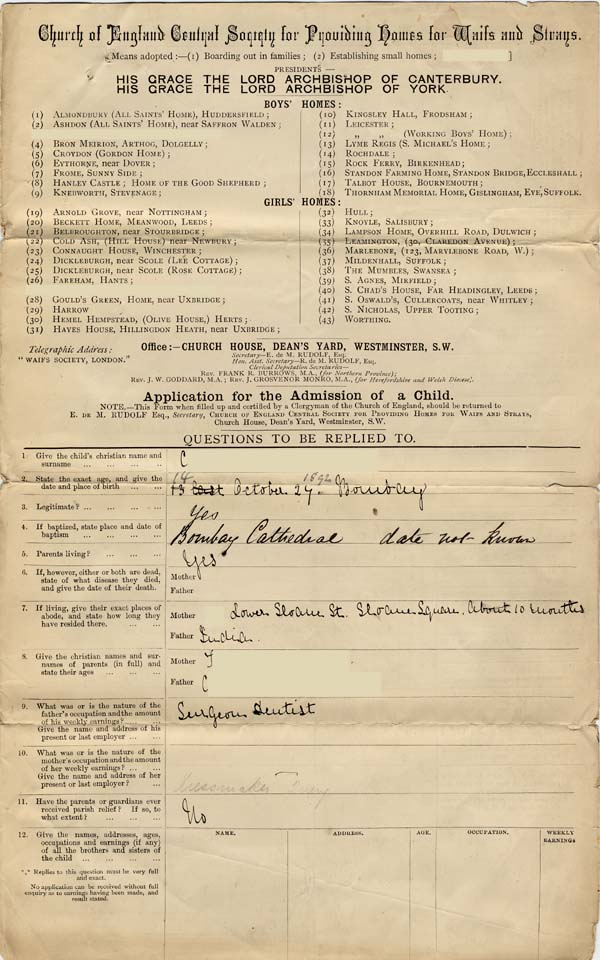 Church of England Central Society for Providing Homes for Waifs and Strays.
Means adopted :—(1) Boarding out in families ; (2) Establishing small homes ; ]
PRESIDENTS —
HIS GRACE THE LORD ARCHBISHOP OF CANTERBURY.
HIS GRACE THE LORD ARCHBISHOP OF YORK.
BOYS' HOMES :
(1) Almondbury (All Saints' Home), Huddersfield ;
(2) Ashdon (All Saints' Home), near Saffron Walden ;
(4) Bron Meirion, Arthog, Dolgelly ;
(5) Croydon (Gordon Home) ;
(6) Eythorne, near Dover ;
(7) Frome, Sunny Side ;
(8) Hanley Castle ; Home of the Good Shepherd ;
(9) Knebworth, Stevenage ;
(10) Kingsley Hall, Frodsham ;
(11) Leicester ;
(12) „ „ (Working Boys' Home) ;
(13) Lyme Regis (S. Michael's Home ;
(14) Rochdale ;
(15) Rock Ferry, Birkenhead ;
(16) Standon Farming Home, Standon Bridge, Eccleshall ;
(17) Talbot House, Bournemouth ;
(18) Thornham Memorial Home, Gislingham, Eye, Suffolk.
GIRLS' HOMES :
(19) Arnold Grove, near Nottingham ;
(20) Beckett Home, Meanwood, Leeds ;
(21) Belbroughton, near Stourbridge ;
(22) Cold Ash, (Hill House) near Newbury ;
(23) Connaught House, Winchester ;
(24) Dickleburgh, near Scole (Lee Cottage) ;
(25) Dickleburgh, near Scole (Rose Cottage) ;
(26) Fareham, Hants ;
(28) Gould's Green, Home, near Uxbridge ;
(29) Harrow
(30) Hemel Hempstead, (Olive House,) Herts ;
(31) Hayes House, Hillingdon Heath, near Uxbridge ;
(32) Hull ;
(33) Knoyle, Salisbury ;
(34) Lampson Home, Overhill Road, Dulwich ;
(35) Leamington, (30, Claredon Avenue) ;
(36) Marlebone, (123, Marylebone Road, W.) ;
(37) Mildenhall, Suffolk ;
(38) The Mumbles, Swansea ;
(39) S. Agnes, Mirfield ;
(40) S. Chad's House, Far Headingley, Leeds ;
(41) S. Oswald's, Cullercoats, near Whitley ;
(42) S. Nicholas, Upper Tooting ;
(43) Worthing.
Telegraphic Address :
"WAIFS SOCIETY, LONDON."
Office :—CHURCH HOUSE, DEAN'S YARD, WESTMINSTER, S.W.
Secretary—E. de M. RUDOLF, Esq.
Hon. Asst. Secretary—R. de M. RUDOLF, Esq.
Clerical Deputation Secretaries—
Rev. FRANK R. BURROWS, M.A., (for Northern Province);
Rev. J. W. GODDARD, M.A ; Rev. J. GROSVENOR MONRO, M.A., (for Herefordshire and Welsh Dioceses).
Application for the Admission of a Child.
NOTE.—This Form when filled up and certified by a Clergyman of the Church of England, should be returned to
E. de M. RUDOLF Esq., Secretary, Church of England Central Society for Providing Homes for Waifs and Strays,
Church House, Dean's Yard, Westminster, S.W.
QUESTIONS TO BE REPLIED TO.
1. Give the child's christian name and
surname ... ... ... ...
C
2. State the exact age, and give the
date and place of birth ... ...
14
13 last October 27. 1892 Bombay
3. Legitimate? ... ... ... ...
Yes
4. If baptized, state place and date of
baptism ... ... ... ...
Bombay Cathedral date not known
5. Parents living? ... ... ...
Yes
6. If, however, either or both are dead,
state of what disease they died,
and give the date of their death.
Mother
Father
7. If living, give their exact places of
abode, and state how long they
have resided there. ... ...
Mother Lower Sloane St. Sloane Square. About 10 months
Father India.
8. Give the christian names and sur-
names of parents (in full) and
state their ages ... ... ...
Mother F
Father C
9. What was or is the nature of the
father's occupation and the amount
of his weekly earnings? ... ...
Give the name and address of his
present or last employer ... ...
Surgeon Dentist
10. What was or is the nature of the
mother's occupation and the amount
of her weekly earnings? ... ...
Give the name and address of her
present or last employer? ...
Dressmaker
11. Have the parents or guardians ever
received parish relief? If so, to
what extent? ... ... ...
No
12. Give the names, addresses, ages,
occupations and earnings (if any)
of all the brothers and sisters of
the child ... ... ... ...
NAME. ADDRESS. AGE. OCCUPATION. WEEKLY EARNINGS
*,* Replies to this question must be very full
and exact.
No application can be received without full
enquiry as to earnings having been made, and
result stated.